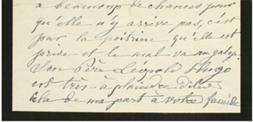 a beaucoup de chances pour
qu'elle n'y arrive pas, c'est
par la poitrine qu'elle est
prise et le mal va au galop.
Son Père Léopold Hugo
est très à plaindre, dites
cela de ma part à votre famille